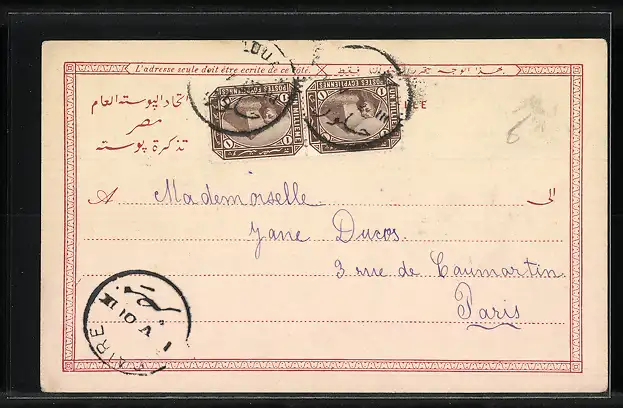 L'adresse seule doit être écrite de ce côté.
اتحاد البوستة العام
مصر
تذكرة بوستة
POSTES EGYPTIENNES
UN MILLIEME
1
POSTES EGYPTIENNES
UN MILLIEME
1
حلوان
6
A Mademoiselle الى
Jane Ducos
3 rue de Caumartin
Paris
CAIRE
1 V 01